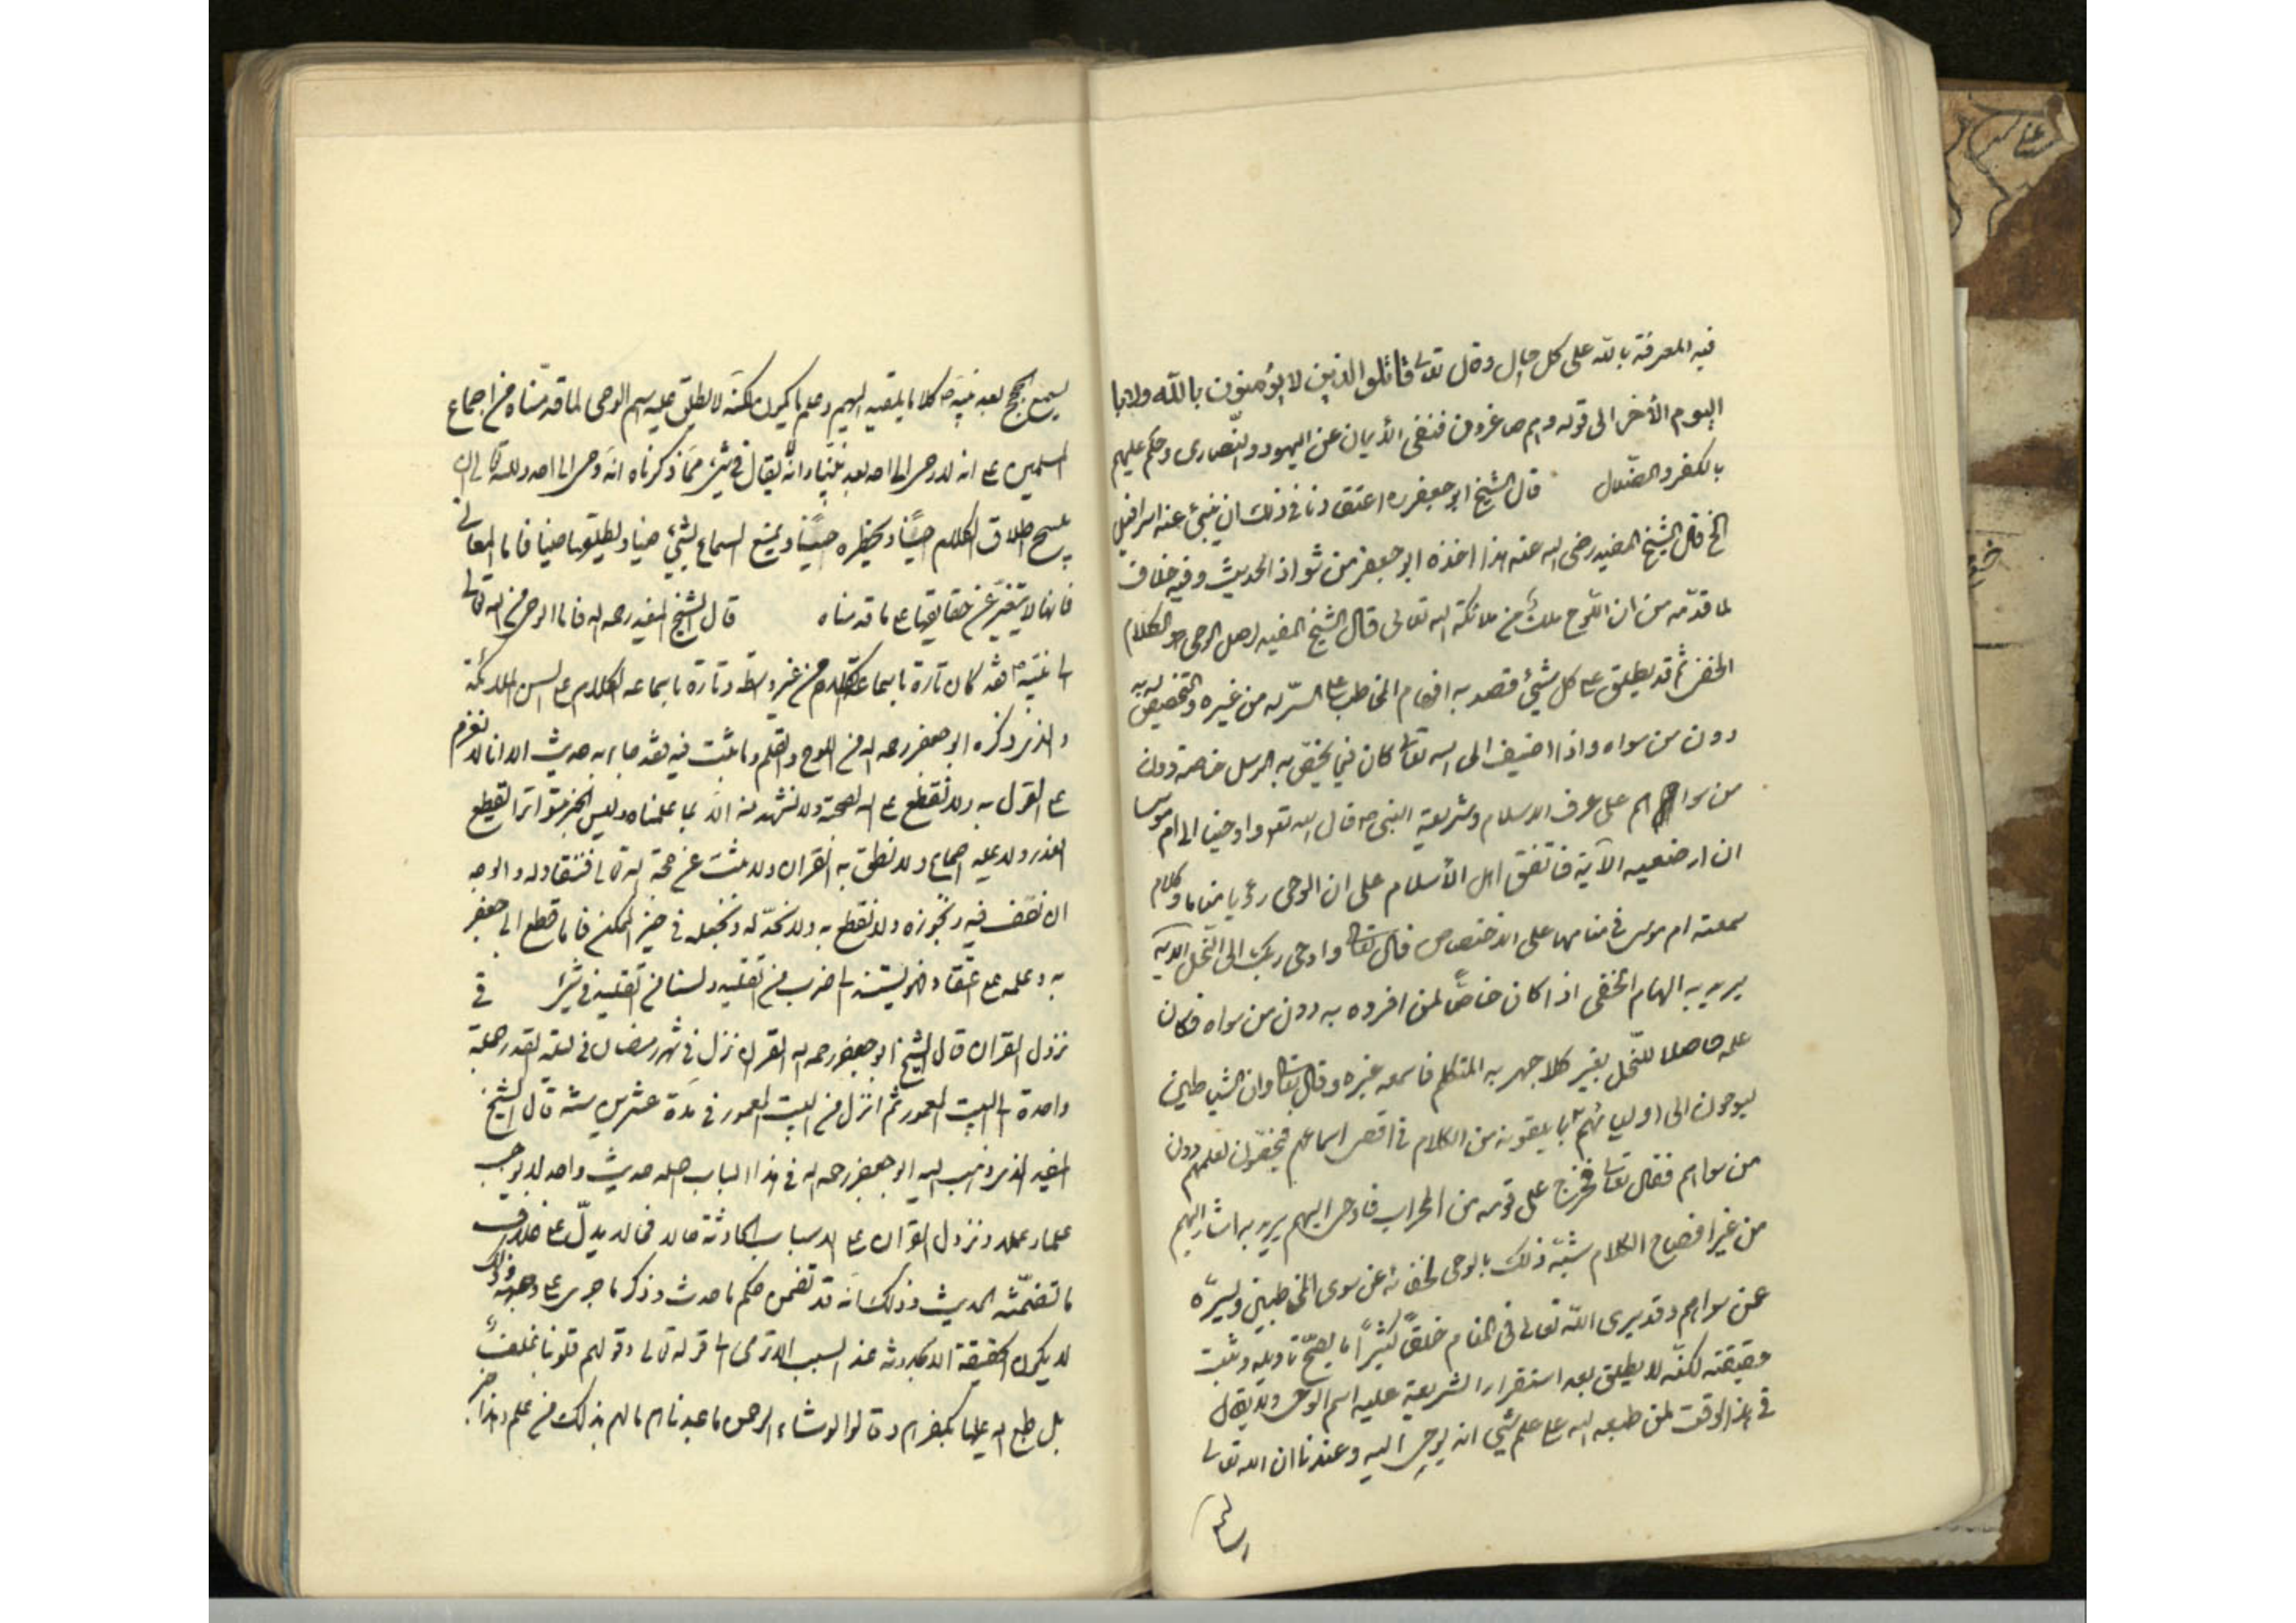 فيه المعرفة بالله على كل حال وقال تعالى قاتلوا الذين لا يؤمنون بالله ولا با
اليوم الأخر الى قوله وهم صاغرون فنفى الأيمان عن اليهود والنصارى وحكم عليهم
بالكفر والضلال قال الشيخ ابو جعفر ره اعتقادنا في ذلك ان بين عينى اسرافيل
الخ قال الشيخ المفيد رضى الله عنه هذا اخذه ابو جعفر من شواذ الحديث وفيه خلاف
لما قدمه من ان اللوح ملك من ملائكة الله تعالى قال الشيخ المفيد اصل الوحى هو الكلام
الخفى ثم قد يطلق على كل شيئ قصد به افهام المخاطب على السر له من غيره والتخصيص له به
دون من سواه واذا اضيف الى الله تعالى كان فيما يختص به الرسل خاصة دون
من سواهم على عرف الاسلام وشريعة النبى ص قال الله تعالى واوحينا الى ام موسى
ان ارضعيه الآية فاتفق اهل الأسلام على ان الوحى رؤيا مناما و كلام
سمعته ام موسى فى منامها على الاختصاص قال تعالى واوحى ربك الى النحل الآية
يريد به الهام الخفى اذا كان خاصا لمن افرده به دون من سواه فكان
علمه حاصلا للنحل بغير كلام جهر به المتكلم فاسمعه غيره وقال تعالى وان الشياطين
ليوحون الى اوليائهم بما يلقونه من الكلام في اقصى اسماعهم فيخصون لعلمهم دون
من سواهم فقال تعالى فخرج على قومه من المحراب فاوحى اليهم يريد به اشار اليهم
من غير افصاح الكلام شبه ذلك بالوحى لخفائه عن سوى المخاطبين ولستره
عن سواهم وقد يرى الله تعالى فى المنام خلقا كثيرا ما يصح تاويله ويثبت
حقيقته لكنه لا يطلق بعد استقرار الشريعة عليه اسم الوحى ولا يقال
في هذا الوقت لمن طبعه الله على علم شيئ انه يوحى اليه وعندنا ان الله تعالى
يسمع الحجج بعد نبيه ص كلاما يلقيه اليهم وعلم ما يكون لكنه لا يطلق عليه اسم الوحى لما قدمناه من اجماع
المسلمين على انه لا وحى الى احد بعد نبينا وانه لا يقال في شيئ مما ذكرناه انه وحى الى احد ولله تعالى ان
يبيح اطلاق الكلام حينا ويحظره حينا ويمنع السماع بشيئ حينا ويطلقها حينا فاما المعانى
فانها لا تتغير عن حقايقها على ما قدمناه قال الشيخ المفيد رحمه الله فاما الوحى من الله تعالى
الى نبيه ص فقد كان تارة باسماعه الكلام من غير واسطة وتارة باسماعه الكلام على السن الملائكة
والذى ذكره ابو جعفر رحمه الله من اللوح والقلم وما يثبت فيه فقد جاء به حديث الا انا لا نعزم
على القول به ولا نقطع على الله بصحته ولا نشهد منه الا بما علمناه وليس الخبر متواترا لقطع
العذر ولا عليه اجماع ولا نطق به القران ولا ثبت عن حجة الله تعالى فننقاد له والوجه
ان نقف فيه ونجوزه ولا نقطع به ولا نرده له ونجعله فى حيز الممكن فاما قطع ابى جعفر
به وعلمه على اعتقاده فهو يستند الى ضرب من التقليد ولسنا من التقليد فى شئ في
نزول القران قال الشيخ ابو جعفر رحمه الله القران نزل في شهر رمضان في ليلة القدر جملة
واحدة الى البيت المعمور ثم انزل من البيت المعمور فى مدة عشرين سنة قال الشيخ
المفيد الذى ذهب اليه ابو جعفر رحمه الله فى هذا الباب اصله حديث واحد لا يوجب
علما ولا عملا ونزول القران على الاسباب الحادثة حالا فحالا يدل على خلاف
ما تضمنه الحديث وذلك انه قد تضمن حكم ما حدث وذكر ما جرى على وجهه وذلك
لا يكون على الحقيقة الا لحدوثه عند السبب الا ترى الى قوله تعالى وقولهم قلوبنا غلف
بل طبع الله عليها بكفرهم وقالوا لو شاء الرحمن ما عبدناهم ما لهم بذلك من علم وهذا خبر